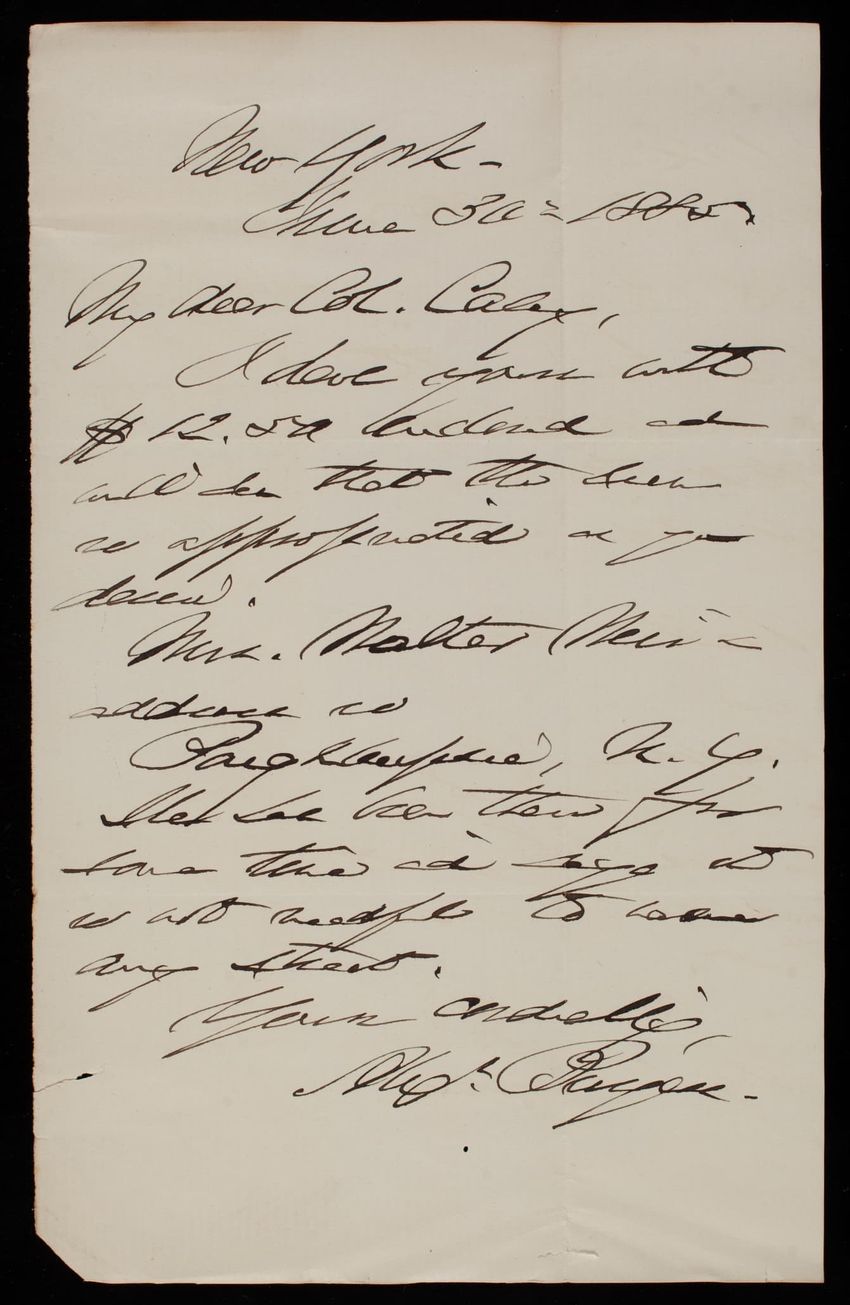 New York -
June 30= 1885.
My dear Col. Casey,
I have yours with
$12.50 enclosed and
will see that the sum
is appropriated as you
desire.
Mrs. Walter
address is
Poughkeepsie, N. Y.
She has been there for
some time and says it
is not needful to name
any street.
Yours cordially,